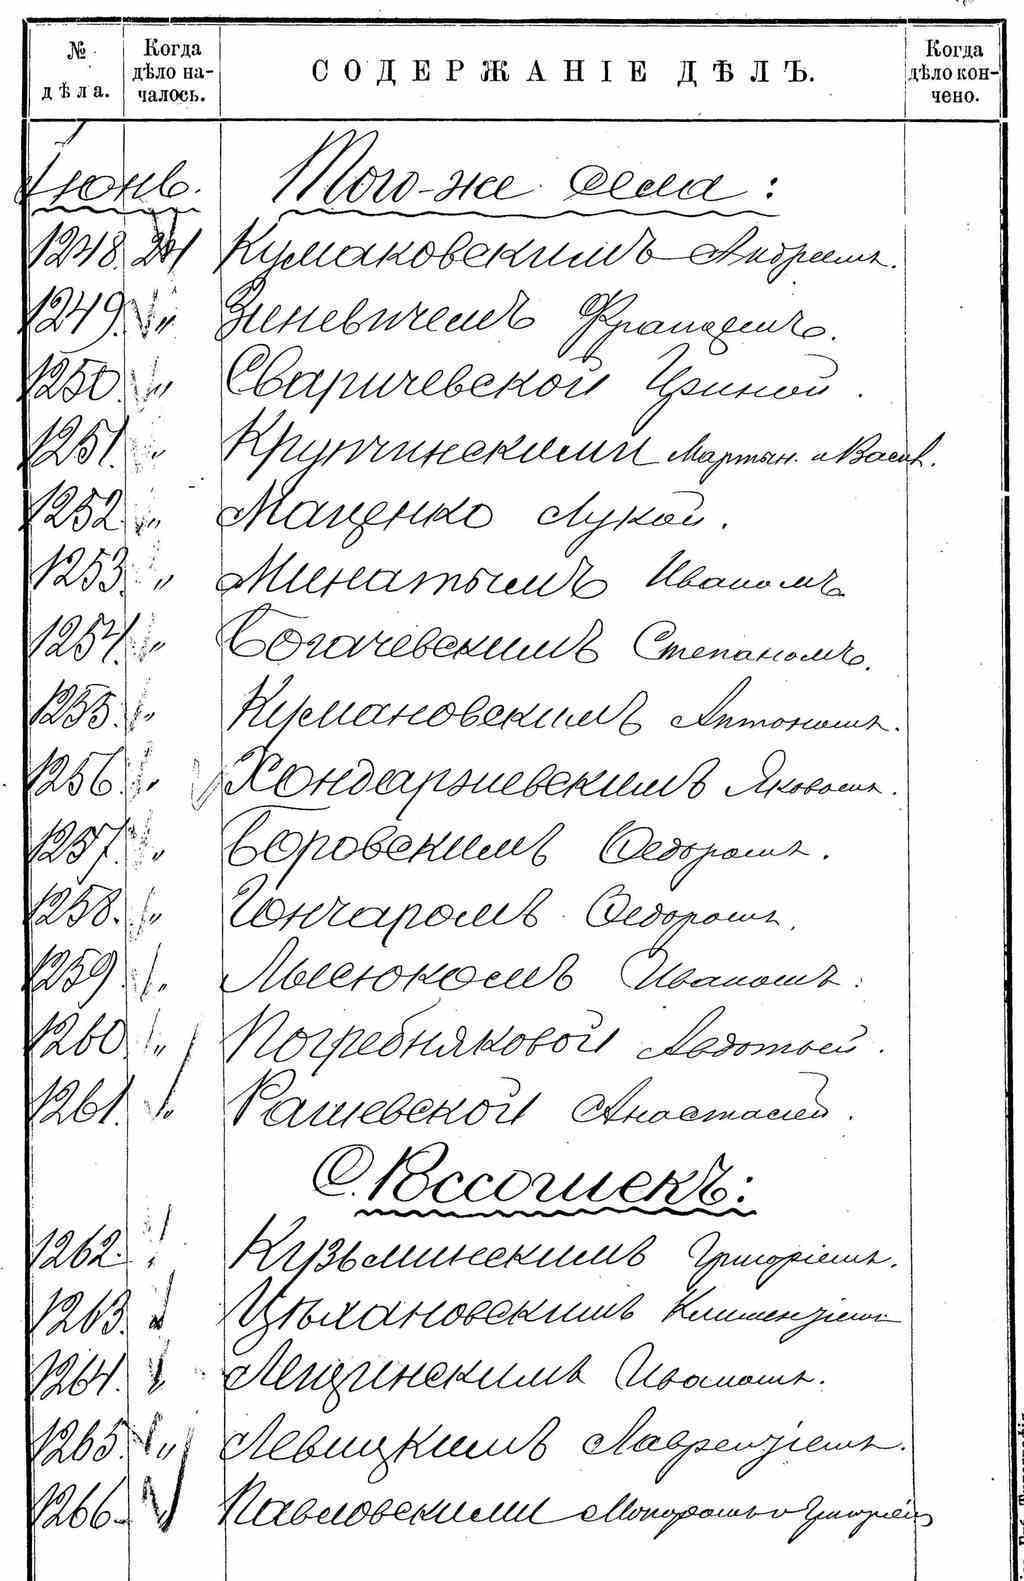 № дѣла. Когда дѣло началось. СОДЕРЖАНІЕ ДѢЛЪ. Когда дѣло кончено.
Іюнь. Того-же села:
1248. Андреемъ.
1249. " Зеневичемъ
1250. " Сваричевской Ириной.
1251. " Крупчинскими Мартын. и Васил.
1252. " Маценко Лукой.
1253. " Минатымъ Иваномъ
1254. " Богачевскимъ Степаномъ.
1255. " Кумановскимъ Антономъ.
1256. " Хондаржевскимъ Яковомъ.
1257. " Боровскимъ Ѳедоромъ.
1258. " Гончаромъ Ѳедоромъ.
1259. " Лысюкомъ Иваномъ.
1260. " Погребняковой Авдотьей.
1261. " Рашевской Анастасіей.
С. Россошекъ:
1262. " Кузьминскимъ Григоріемъ.
1263. " Цѣхановскимъ
1264. " Лещинскимъ Иваномъ.
1265. " Левицкимъ Лаврентіемъ.
1266. " Павловскими